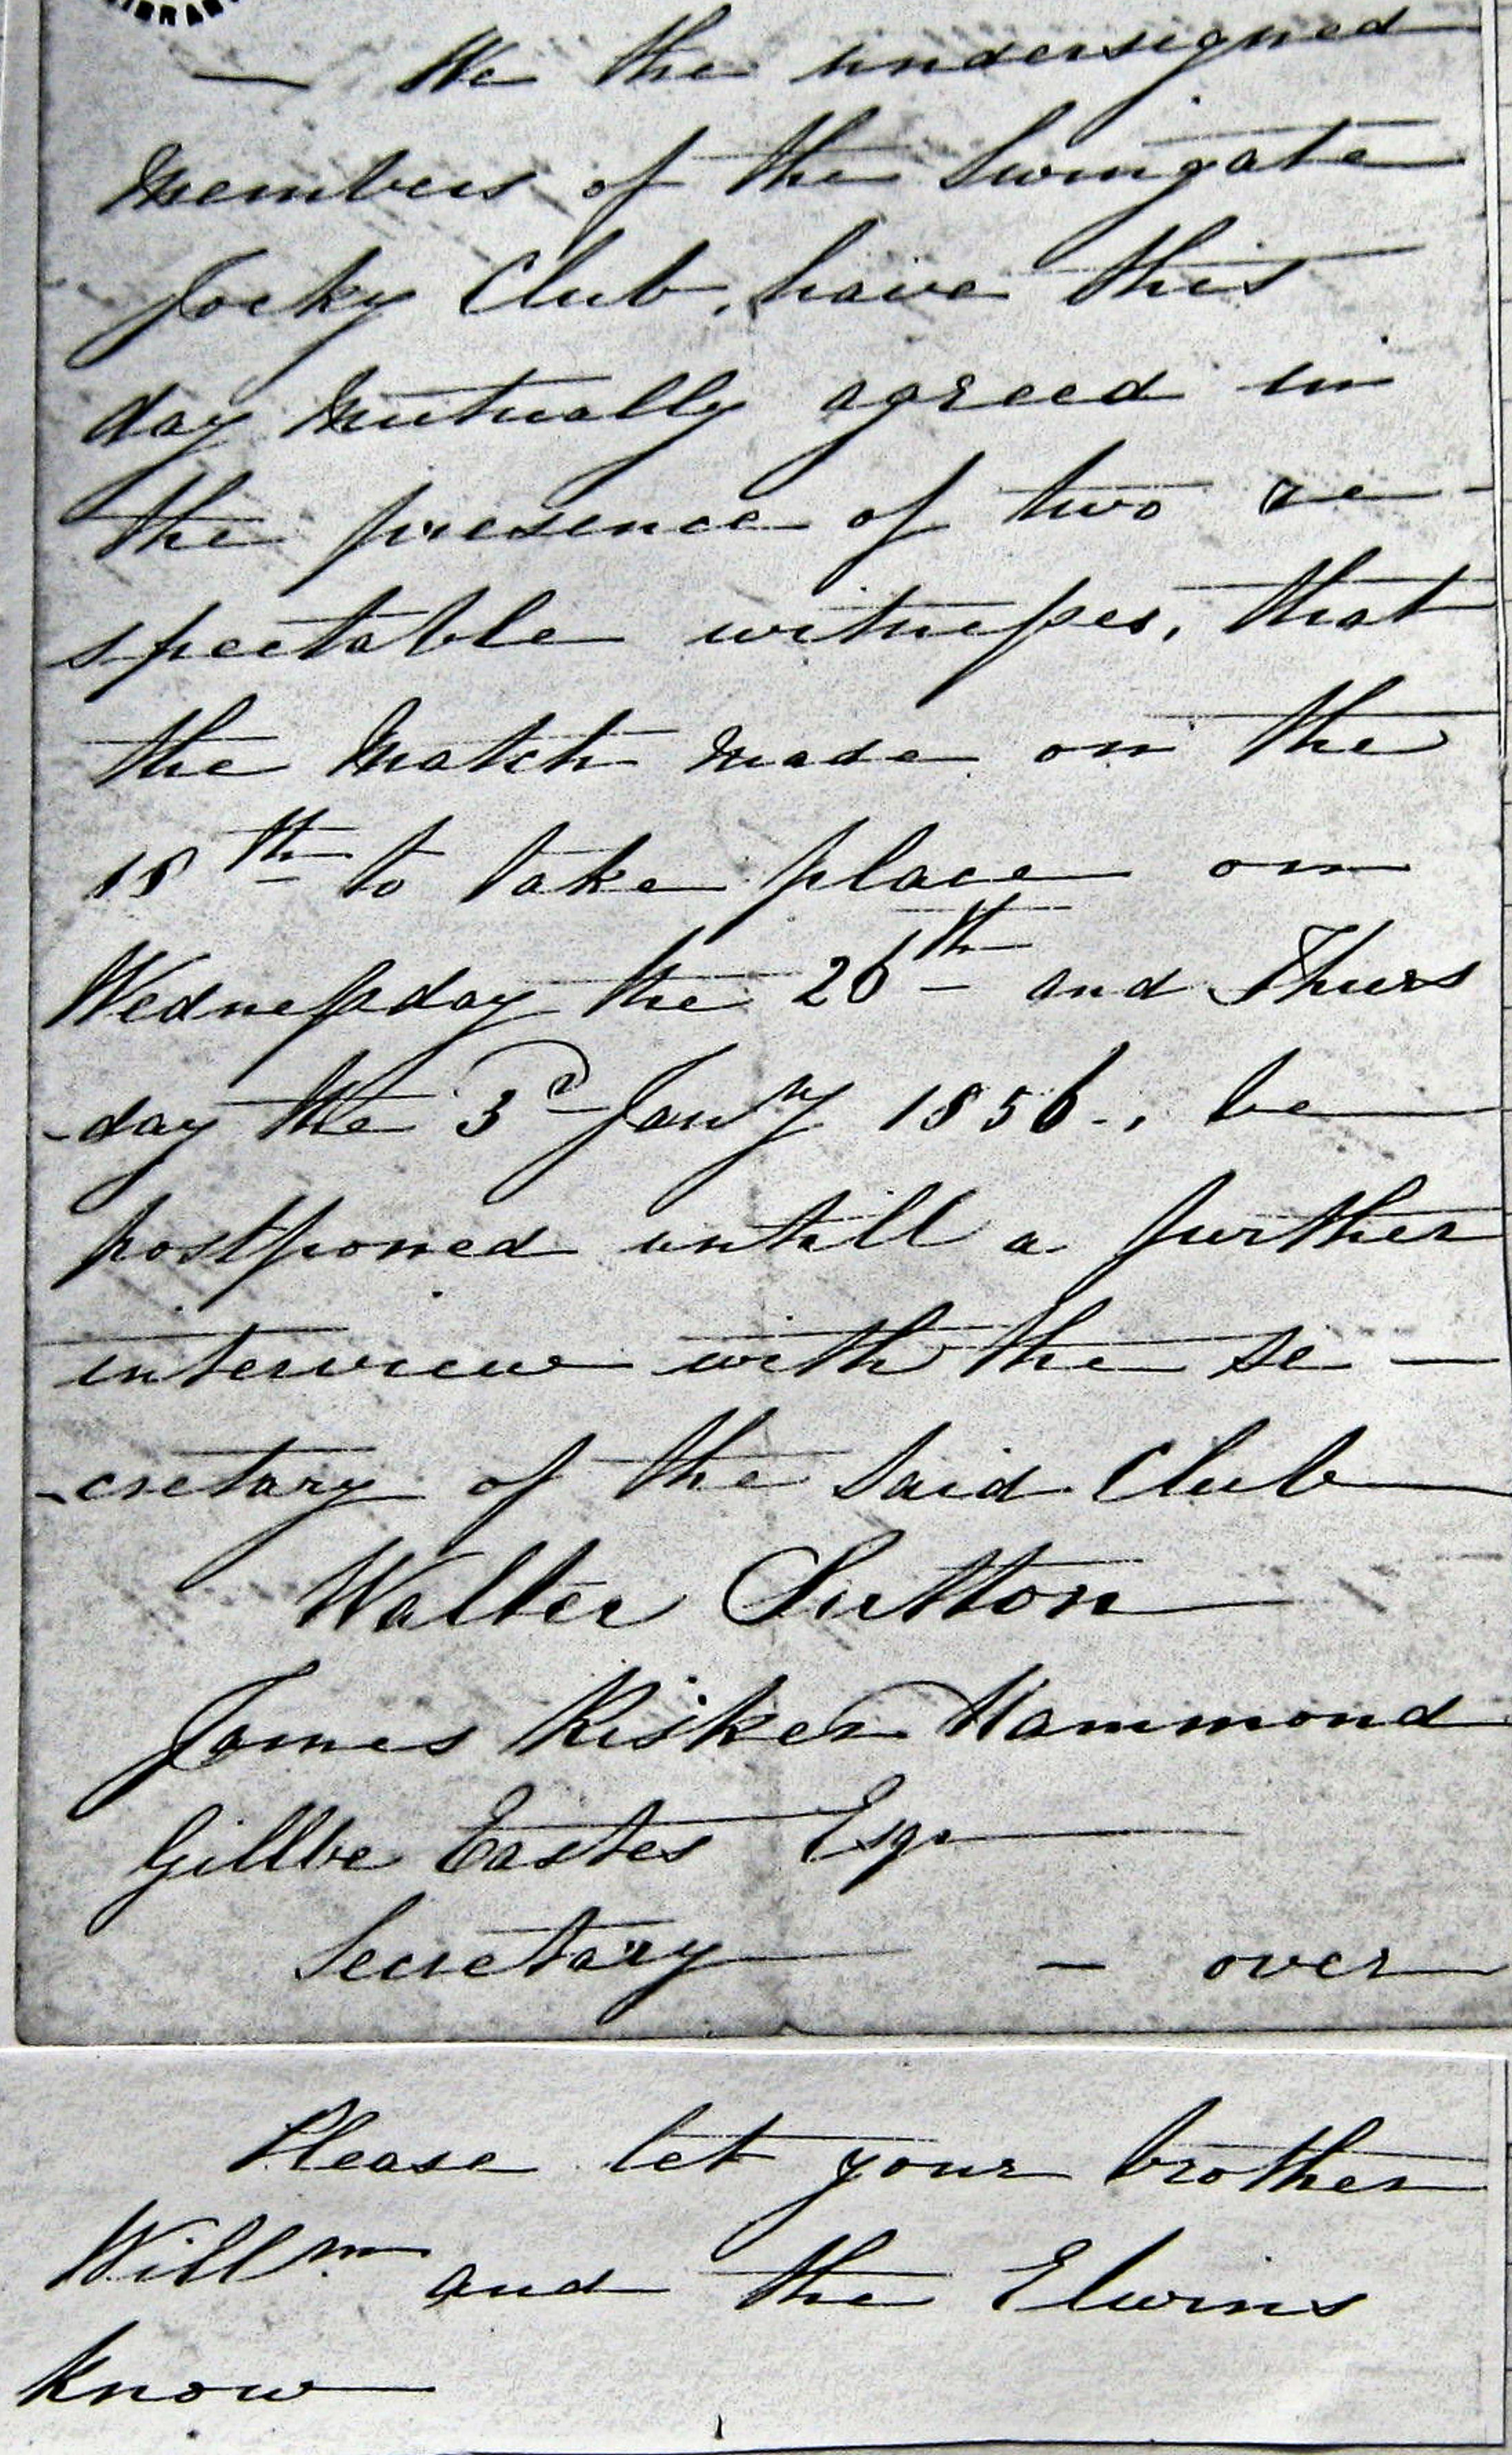 IBRAR
— We the undersigned
Members of the Swingate
Jocky Club, have this
day Mutually agreed in
the presence of two re-
spectable witnesses, that
the Match Made on the
18th to take place on
Wednessday the 26th and Thurs
-day the 3rd Jany 1856., be
postponed untill a further
interview with the se-
-cretary of the Said Club
Walter Sutton
James Risker Hammond
Gillbe Eastes Esqr
Secretary — over
Please let your brother
Willm and the Elwins
know